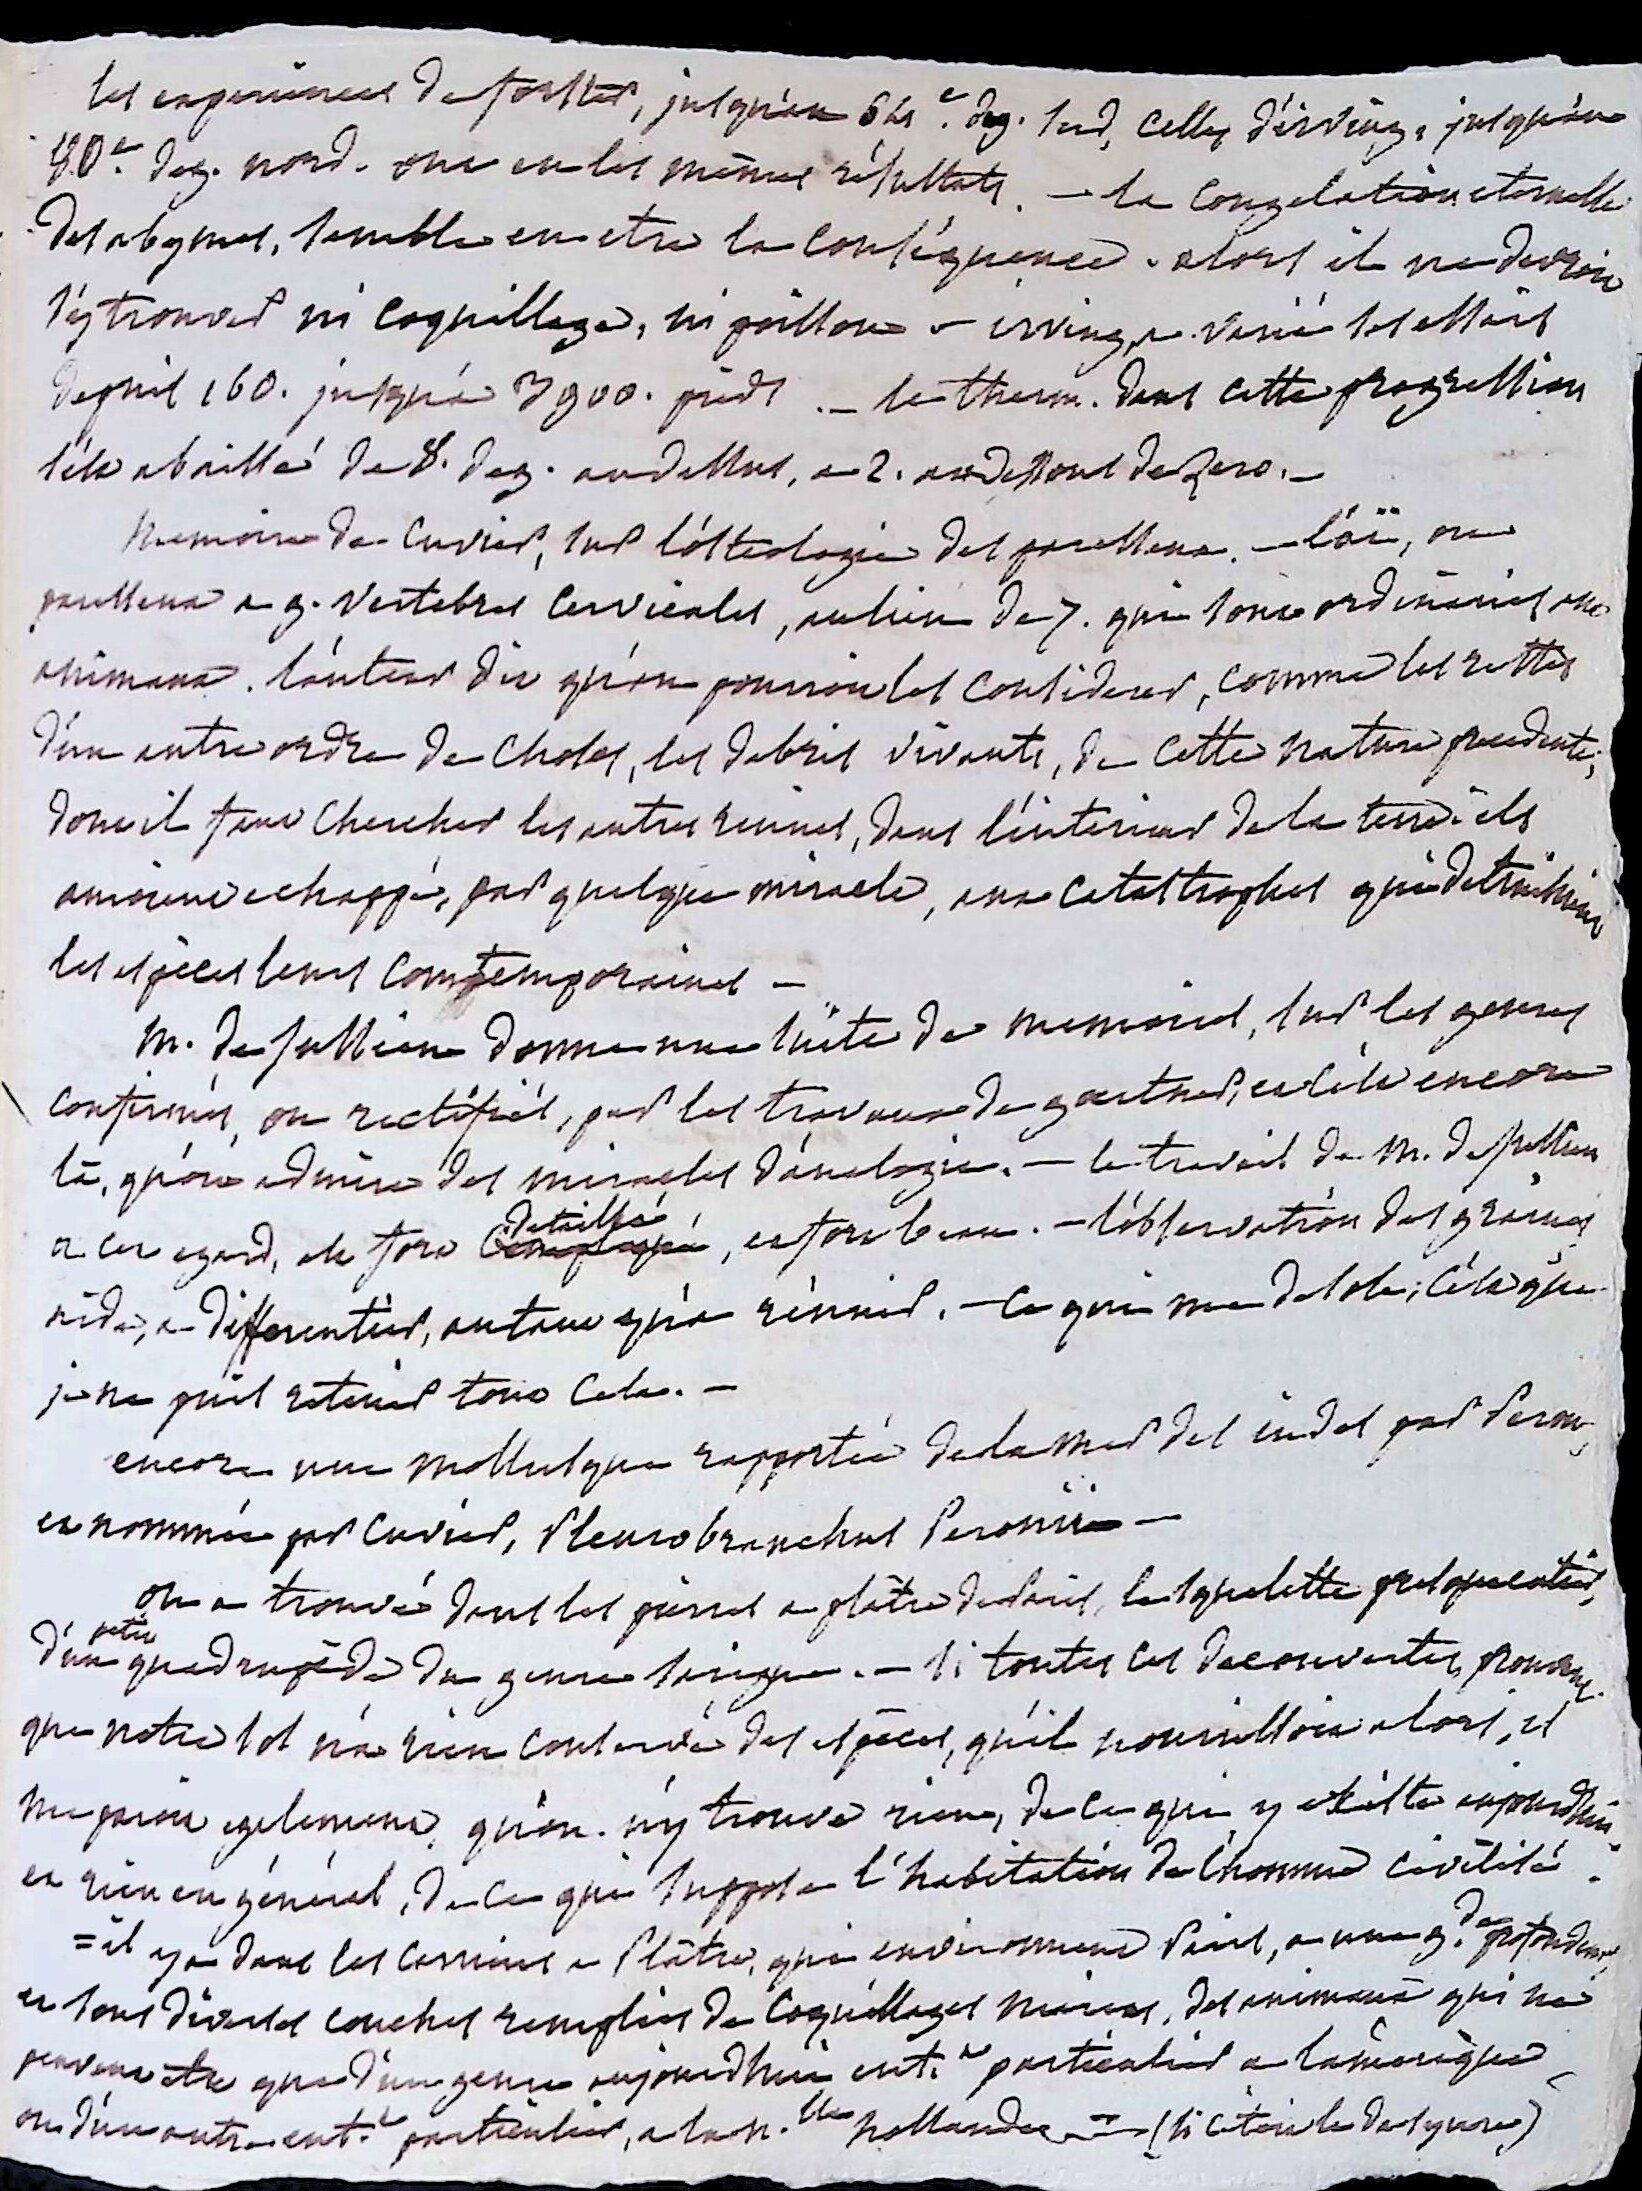 les experiences de forster, jusqu'au 64.e deg. sud, celles d'irving, jusqu'au
80.e deg. nord. ont eu les mêmes résultats. – la congelation eternelle
des abymes, semble en etre la conséquence. alors il ne devroit
s'y trouver ni coquillage, ni poisson – irving, a varié ses essais
depuis 160. jusqu'à 3900. pieds. – le therm. dans cette progression
s'est abaissé de 8. deg. audessus, a 2. audessous de zero. –
Memoire de Cuvier, sur l'ósteologie des paresseux. – l'aï, ou
paresseux a 9. vertebres cervicales, aulieu de 7. qui sont ordinaires aux
animaux. l'auteur dit qu'on pourroit les considerer, comme les restes
d'un autre ordre de choses, les debris vivants, de cette nature precedente,
dont il faut chercher les autres ruines, dans l'interieur de la terre. ils
auroient echappé, par quelque miracle, aux catastrophes qui detruisirent
les espèces leurs contemporaines –
M. de Jussieu donne une suite de memoires, sur les genres
confirmés, ou rectifiés, par les travaux de gaertner, et c'est encore
là, qu'on admire des miracles d'analogie. – le travail de M. de Jussieu
a cet egard, est fort detaillé, et fort beau. – l'observation des graines,
aide, a differentier, autant qu'a réunir. – ce qui me desole, c'est que
je ne puis retenir tout cela. –
encore une mollusque rapportée de la mer des indes par Peron,
et nommée par Cuvier, Pleurobranchus Peronii –
on a trouvé dans les pierres a plâtre de Paris, le squelette presqu'entier,
d'un petit quadrupède du genre sarigue. – si toutes ces decouvertes, prouvent
que notre sol n'a rien conservé des espèces, qu'il nourrissoit alors, il
me paroit egalement, qu'on n'y trouve rien, de ce qui y existe aujourdhui,
et rien en général, de ce qui suppose l'habitation de l'homme civilisé.
= il y a dans les carrieres a Plâtre, qui environnent Paris, a une g.de profondeur,
et sous diverses couches remplies de coquillages marins, des animaux qui ne
peuvent etre que d'un genre aujourdhui ent.t particulier a l'amérique,
ou d'un autre ent.t particulier, a la n.lle hollande = (si c'étoit le dasyure)